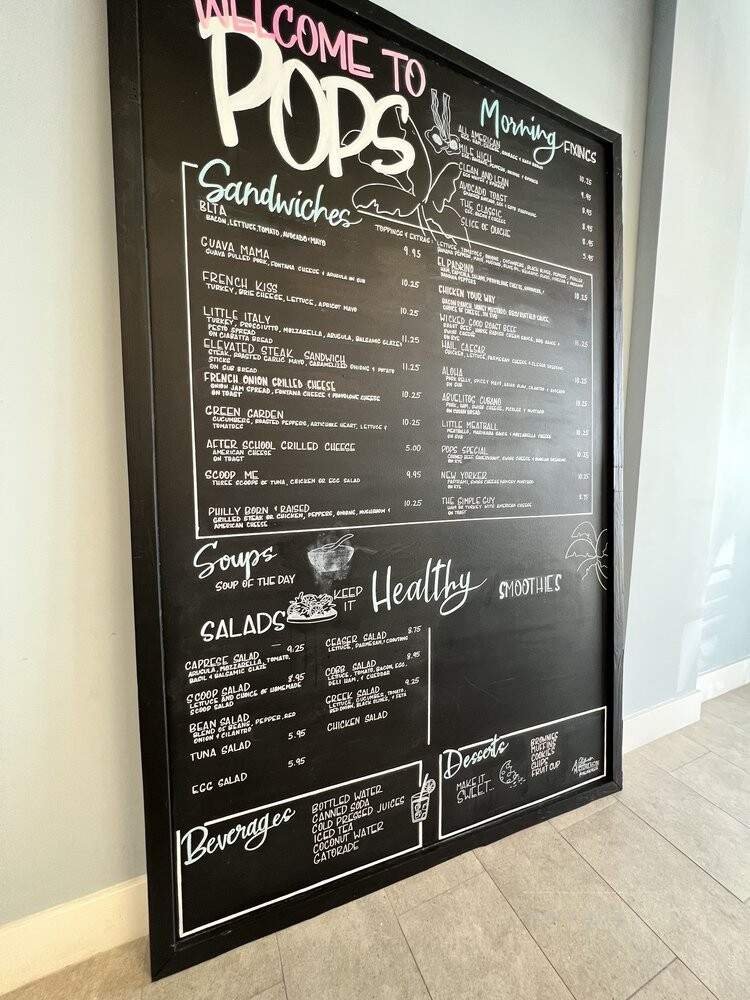 WELCOME TO
POPS
Morning FIXINGS
ALL AMERICAN 10.25
MILE HIGH 9.95
CLEAN AND LEAN 8.95
AVOCADO TOAST 8.95
THE CLASSIC 8.95
SLICE OF QUICHE 5.95
Sandwiches
TOPPINGS & EXTRAS:
BLTA 9.95
BACON, LETTUCE, TOMATO, AVOCADO & MAYO
GUAVA MAMA 10.25
GUAVA PULLED PORK, FONTANA CHEESE & ARUGULA ON SUB
FRENCH KISS 10.25
TURKEY, BRIE CHEESE, LETTUCE, APRICOT MAYO
LITTLE ITALY 11.25
TURKEY, PROSCIUTTO, MOZZARELLA, ARUGULA, BALSAMIC GLAZE
PESTO SPREAD
ON CIABATTA BREAD
ELEVATED STEAK SANDWICH 11.25
STEAK, ROASTED GARLIC MAYO, CARAMELIZED ONIONS & POTATO
STICKS
ON SUB BREAD
FRENCH ONION GRILLED CHEESE 10.25
ONION JAM SPREAD, FONTANA CHEESE & PROVOLONE CHEESE
ON TOAST
GREEN GARDEN 10.25
CUCUMBERS, ROASTED PEPPERS, ARTICHOKE HEART, LETTUCE &
TOMATOES
AFTER SCHOOL GRILLED CHEESE 5.00
AMERICAN CHEESE
ON TOAST
SCOOP ME 9.95
THREE SCOOPS OF TUNA, CHICKEN OR EGG SALAD
PHILLY BORN & RAISED 10.25
GRILLED STEAK OR CHICKEN, PEPPERS, ONIONS, MUSHROOM &
AMERICAN CHEESE
EL PADRINO 10.25
BANANA PEPPERS
CHICKEN YOUR WAY
CHOICE OF CHEESE, ON SUB
WICKED GOOD ROAST BEEF 11.25
SWISS CHEESE
ON RYE
HAIL CAESAR 10.25
CHICKEN, LETTUCE, PARMESAN CHEESE & CAESAR DRESSING
ALOHA 10.25
ON SUB
ABUELITOS CUBANO 10.25
PORK, HAM, SWISS CHEESE, PICKLES & MUSTARD
ON CUBAN BREAD
LITTLE MEATBALL 10.25
MEATBALLS, MARINARA SAUCE & MOZZARELLA CHEESE
ON SUB
POPS SPECIAL 10.25
CORNED BEEF, SAUERKRAUT, SWISS CHEESE & RUSSIAN DRESSING
ON RYE
NEW YORKER 10.25
PASTRAMI, SWISS CHEESE & HONEY MUSTARD
ON RYE
THE SIMPLE GUY 8.75
HAM OR TURKEY WITH AMERICAN CHEESE
ON TOAST
Soups
SOUP OF THE DAY
KEEP
IT Healthy
SMOOTHIES
SALADS
CAPRESE SALAD 9.25
ARUGULA, MOZZARELLA, TOMATO,
BASIL & BALSAMIC GLAZE
SCOOP SALAD 8.95
LETTUCE AND CHOICE OF HOMEMADE
SCOOP SALAD
BEAN SALAD 5.95
BLEND OF BEANS, PEPPER, RED
ONION & CILANTRO
TUNA SALAD 5.95
EGG SALAD
CEASER SALAD 8.75
LETTUCE, PARMESAN & CROUTONS
COBB SALAD 8.95
LETTUCE, TOMATO, BACON, EGG,
DELI HAM, & CHEDDAR
GREEK SALAD 9.25
LETTUCE, CUCUMBER, TOMATO,
RED ONION, BLACK OLIVES, & FETA
CHICKEN SALAD
Beverages
BOTTLED WATER
CANNED SODA
COLD PRESSED JUICES
ICED TEA
COCONUT WATER
GATORADE
Desserts
MAKE IT
SWEET...
BROWNIES
MUFFINS
COOKIES
CHIPS
FRUIT CUP